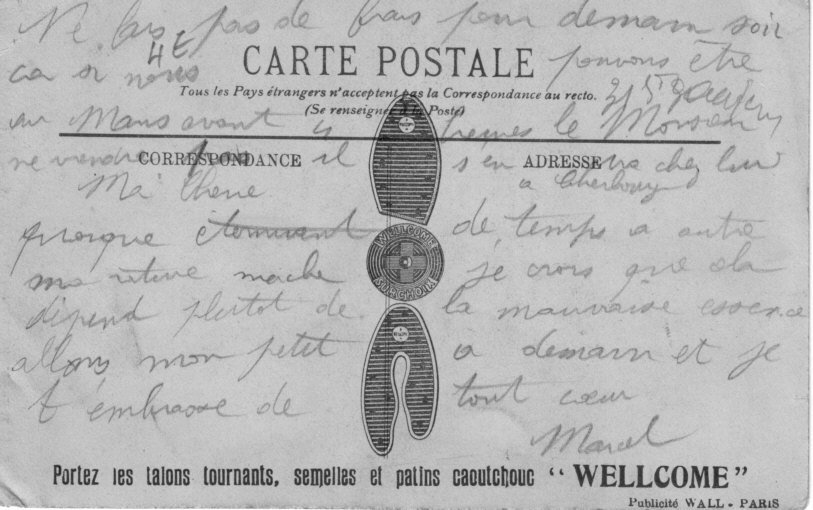 Ne fais pas de frais pour demain soir
4E
CARTE POSTALE
ca si nous pouvons être
Tous les Pays étrangers n'acceptent pas la Correspondance au recto.
(Se renseigner à la Poste)
au Mans avant 4 heures le Monsieur
CORRESPONDANCE
ADRESSE
ne viendra pas il s'en ira chez lui
a Cherbourg
Ma Cherie
presque de temps a autre
WELLCOME
SURCHOIX
ma marche je crois que cela
dipend plutot de la mauvaise essence
allons mon petit a demain et je
t'embrasse de tout cœur
Marcel
Portez les talons tournants, semelles et patins caoutchouc “ WELLCOME ”
Publicité WALL - PARIS